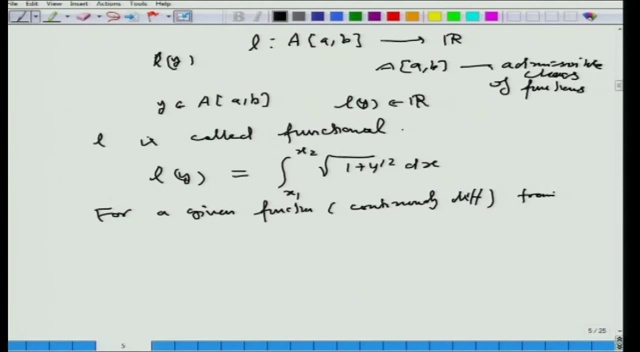 File Edit View Insert Actions Tools Help
l : A[a,b] → IR
l(y)
A[a,b] — admissible class of functions
y ∈ A[a,b] l(y) ∈ IR
l is called functional.
l(y) = ∫_{x₁}^{x₂} √(1+y'²) dx
For a given function (continuously diff) from
5 / 25
5